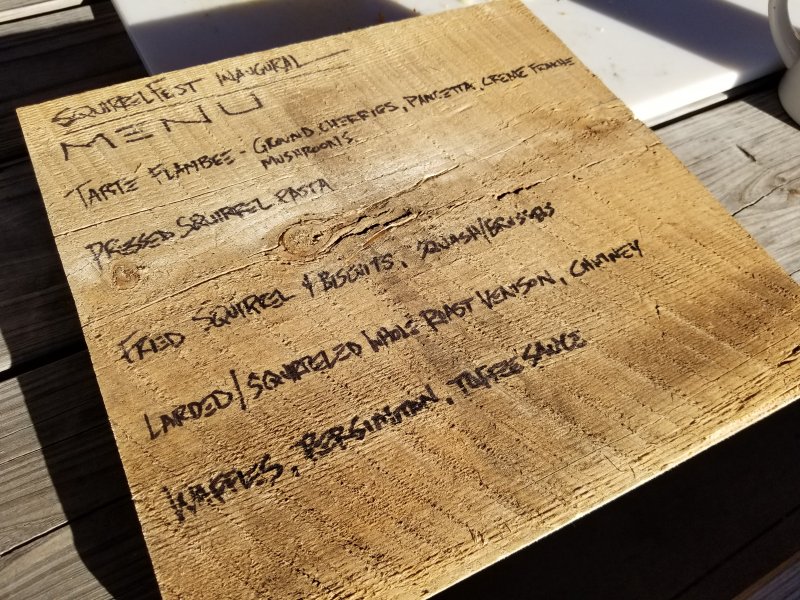 SQUIRRELFEST INAUGURAL
MENU
TARTE FLAMBEE - GROUND CHERRIES, PANCETTA, CREME FRAICHE
MUSHROOMS
PRESSED SQUIRREL PASTA
FRIED SQUIRREL & BISCUITS, SQUASH/BRISSELS
LARDED/SQUIRRELED WHOLE ROAST VENISON, CHUTNEY
WAFFLES, PERSIMMON, TOFFEE SAUCE